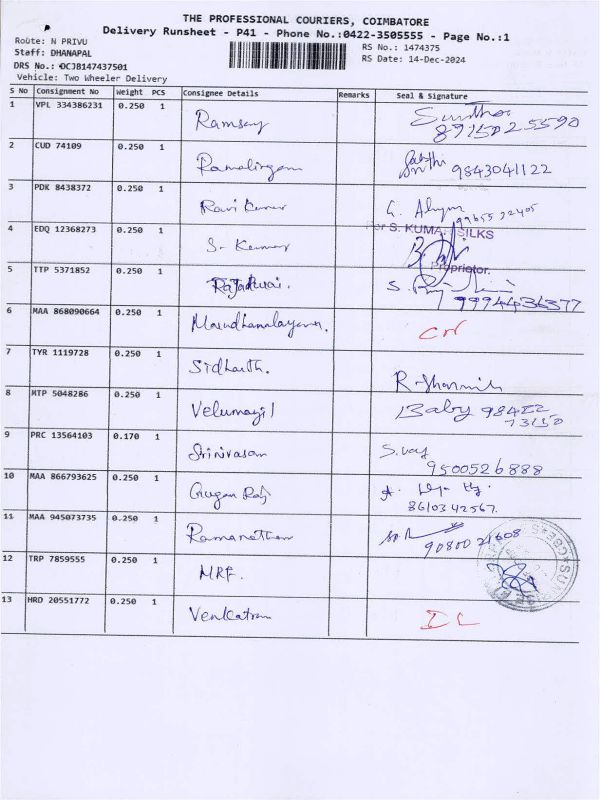 THE PROFESSIONAL COURIERS, COIMBATORE
Delivery Runsheet - P41 - Phone No.:0422-3505555 - Page No.:1
Route: N PRIVU
RS No.: 1474375
Staff: DHANAPAL
RS Date: 14-Dec-2024
DRS No.: DCJB147437501
Vehicle: Two Wheeler Delivery
S No Consignment No Weight PCS Consignee Details Remarks Seal & Signature
1 VPL 334386231 0.250 1 Ramsamy
8915025590
2 CUD 74109 0.250 1 Ramalingam 9843041122
3 PDK 8438372 0.250 1 Ravi Kumar
4 EDQ 12368273 0.250 1 S. Kumar
For S. KUMAR SILKS
Proprietor.
5 TTP 5371852 0.250 1 Rajadurai.
9994436377
6 MAA 868090664 0.250 1
7 TYR 1119728 0.250 1 Sidharth. R. Sharmila
8 MTP 5048286 0.250 1 Velumayil Baby 98422
73150
9 PRC 13564103 0.170 1 Srinivasan
9500526888
10 MAA 866793625 0.250 1 Gugan Raj
8610342567.
11 MAA 945073735 0.250 1 Ramanathan
9080021608
12 TRP 7859555 0.250 1 MRF.
13 HRD 20551772 0.250 1 Venkatram